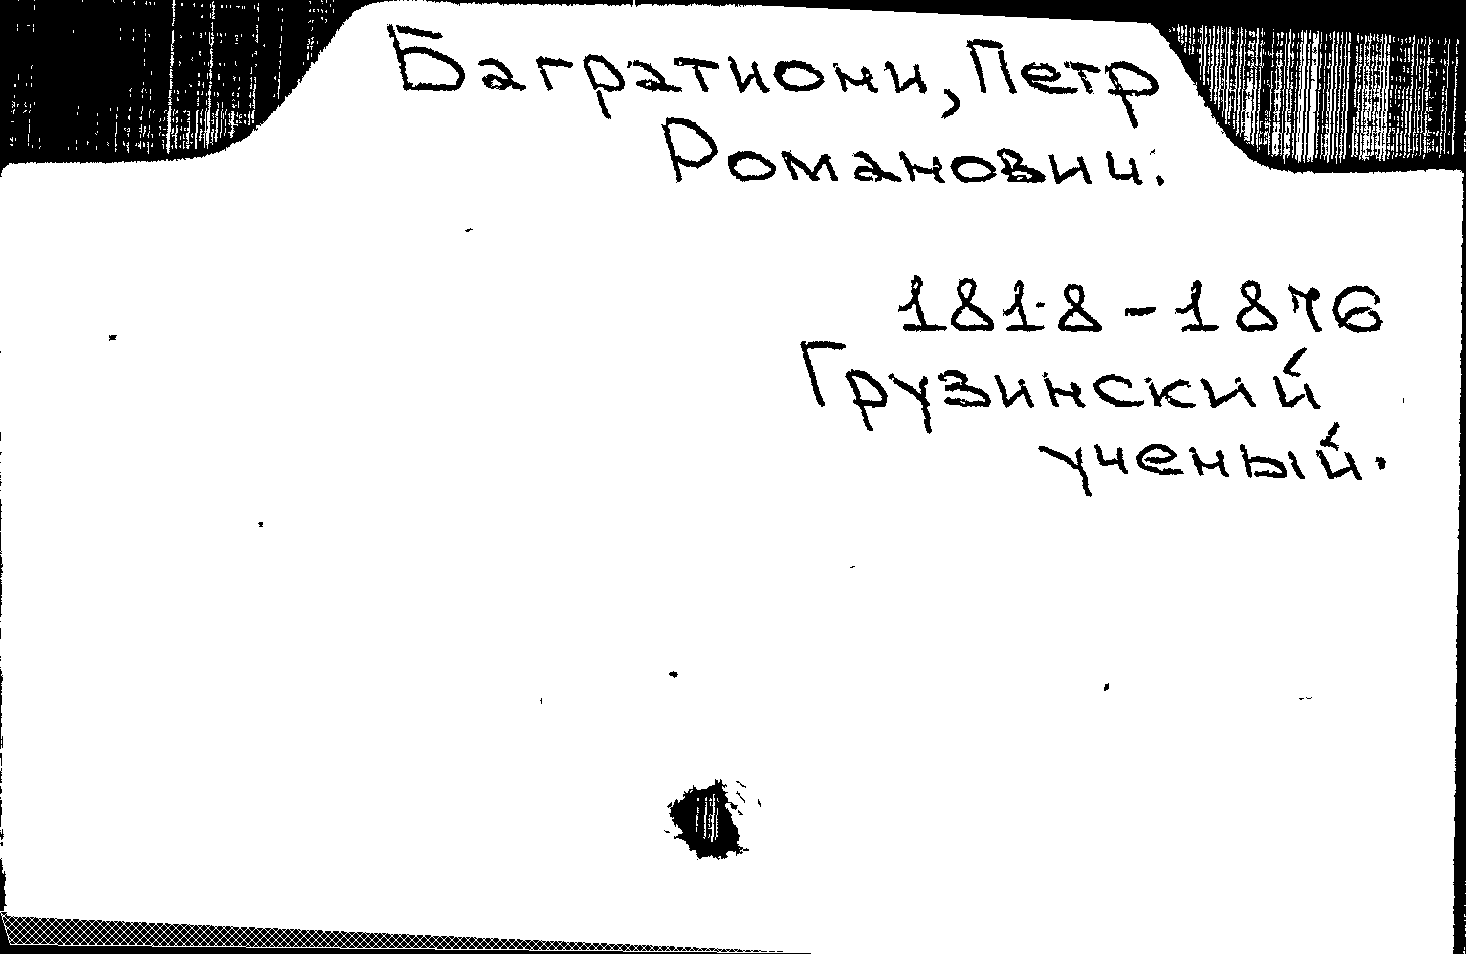 Багратиони, Петр
Романович.
1818-1876
Грузинский
ученый.